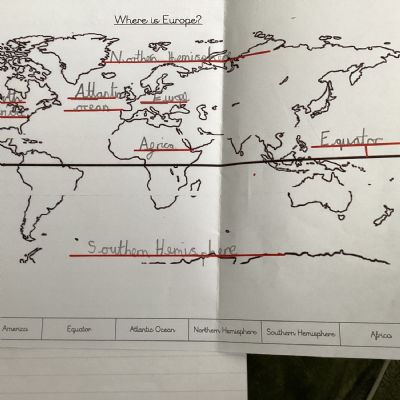 Where is Europe?
Northen Hemisphere
Atlantic
ocean
Europ
Africa
Equator
Southern Hemisphere
America Equator Atlantic Ocean Northern Hemisphere Southern Hemisphere Africa